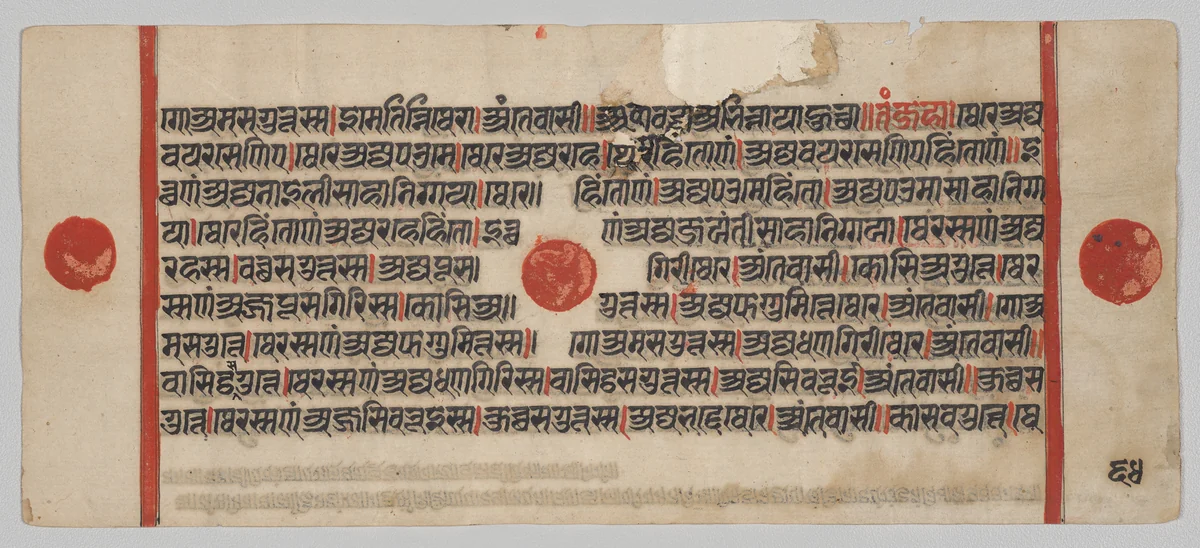 गोअमसगुत्तस्स।इमेतिन्निथेरा।अंतेवासी॥अहावच्चाअभिन्नायाहुत्था॥तंजहा।थेरेअज्ज
वयरसेणिए।थेरेअज्जपउमे।थेरेअज्जरहे।थेरेहिंतोणं।अज्जवयरसेणिएहिंतोणं॥इ
त्थणंअज्जनाइलीसाहानिग्गया।थेरे॥ हिंतोणं।अज्जपउमेहिंतो।अज्जपउमासाहानिग्ग
या।थेरेहिंतोणंअज्जरहेहिंतो।इत्थ णंअज्जजयंतीसाहानिग्गया।थेरस्सणंअज्ज
रहस्स।वच्छसगुत्तस्स।अज्जपूस। गिरीथेरे।अंतेवासी।कोसिअगुत्ते।थेर
स्सणंअज्जपूसगिरिस्स।कोसिअ॥ गुत्तस्स।अज्जफग्गुमित्तेथेरे।अंतेवासी।गोअ
मसगुत्ते।थेरस्सणंअज्जफग्गुमित्तस्स॥ गोअमसगुत्तस्स।अज्जधणगिरीथेरे।अंतेवासी॥
वासिट्ठसगुत्ते।थेरस्सणंअज्जधणगिरिस्स।वासिट्ठसगुत्तस्स।अज्जसिवभूई।अंतेवासी॥कुच्छस
गुत्ते।थेरस्सणंअज्जसिवभूइस्स।कुच्छसगुत्तस्स।अज्जभद्देथेरे।अंतेवासी॥कासवगुत्ते।थे
६४